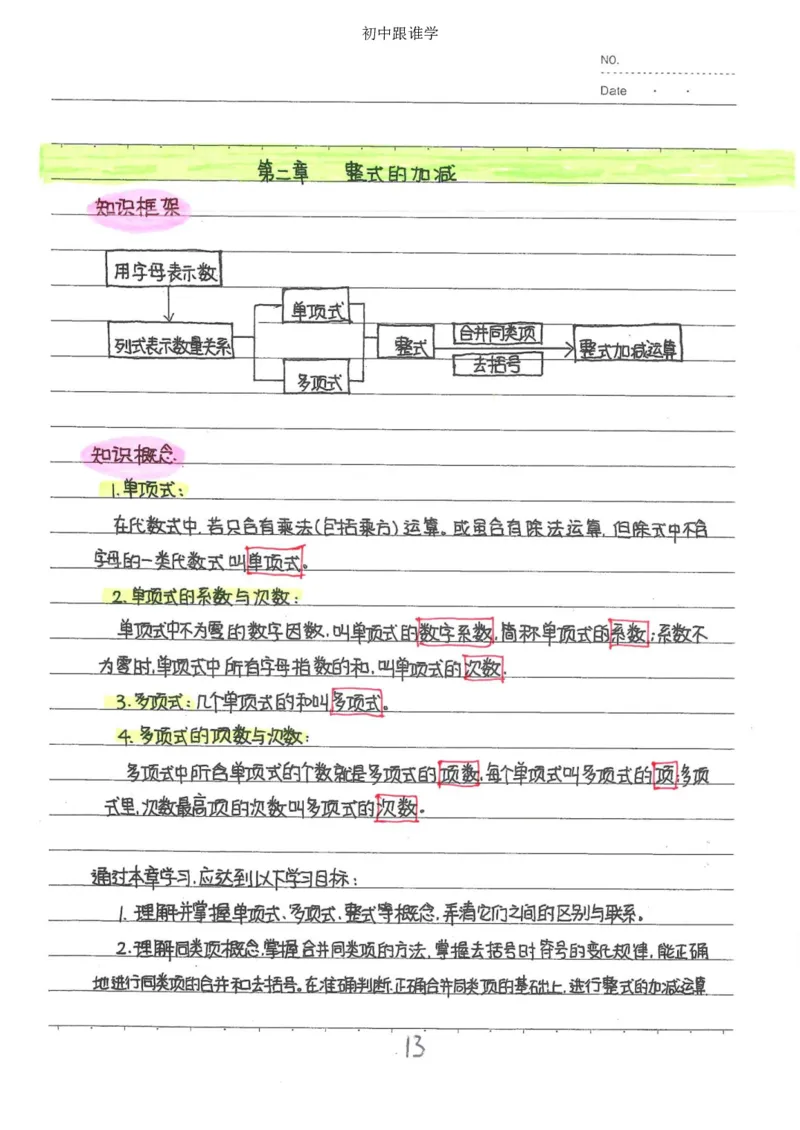 初中跟谁学
NO.
Date
第二章 整式的加减
知识框架
用字母表示数
单项式
列式表示数量关系
整式
合并同类项
去括号
整式加减运算
多项式
知识概念.
1.单项式:
在代数式中,若只含有乘法(包括乘方)运算。或虽含有除法运算,但除式中不含
字母的一类代数式叫单项式。
2.单项式的系数与次数:
单项式中不为零的数字因数,叫单项式的数字系数,简称单项式的系数;系数不
为零时,单项式中所有字母指数的和,叫单项式的次数.
3.多项式:几个单项式的和叫多项式。
4.多项式的项数与次数:
多项式中所含单项式的个数就是多项式的项数,每个单项式叫多项式的项;多项
式里,次数最高项的次数叫多项式的次数。
通过本章学习,应达到以下学习目标:
1.理解并掌握单项式、多项式、整式等概念,弄清它们之间的区别与联系。
2.理解同类项概念,掌握合并同类项的方法,掌握去括号时符号的变化规律,能正确
地进行同类项的合并和去括号。在准确判断,正确合并同类项的基础上,进行整式的加减运算
13